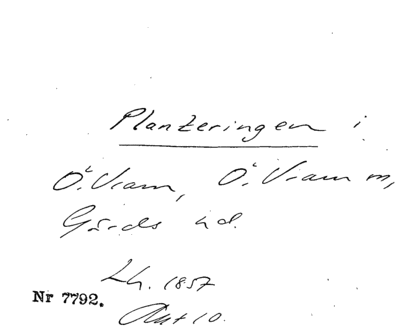 Planteringen i
Ö. Vram, Ö. Vram m,
Gärds hd.
Lh. 1857
Nr 7792.
Akt 10.